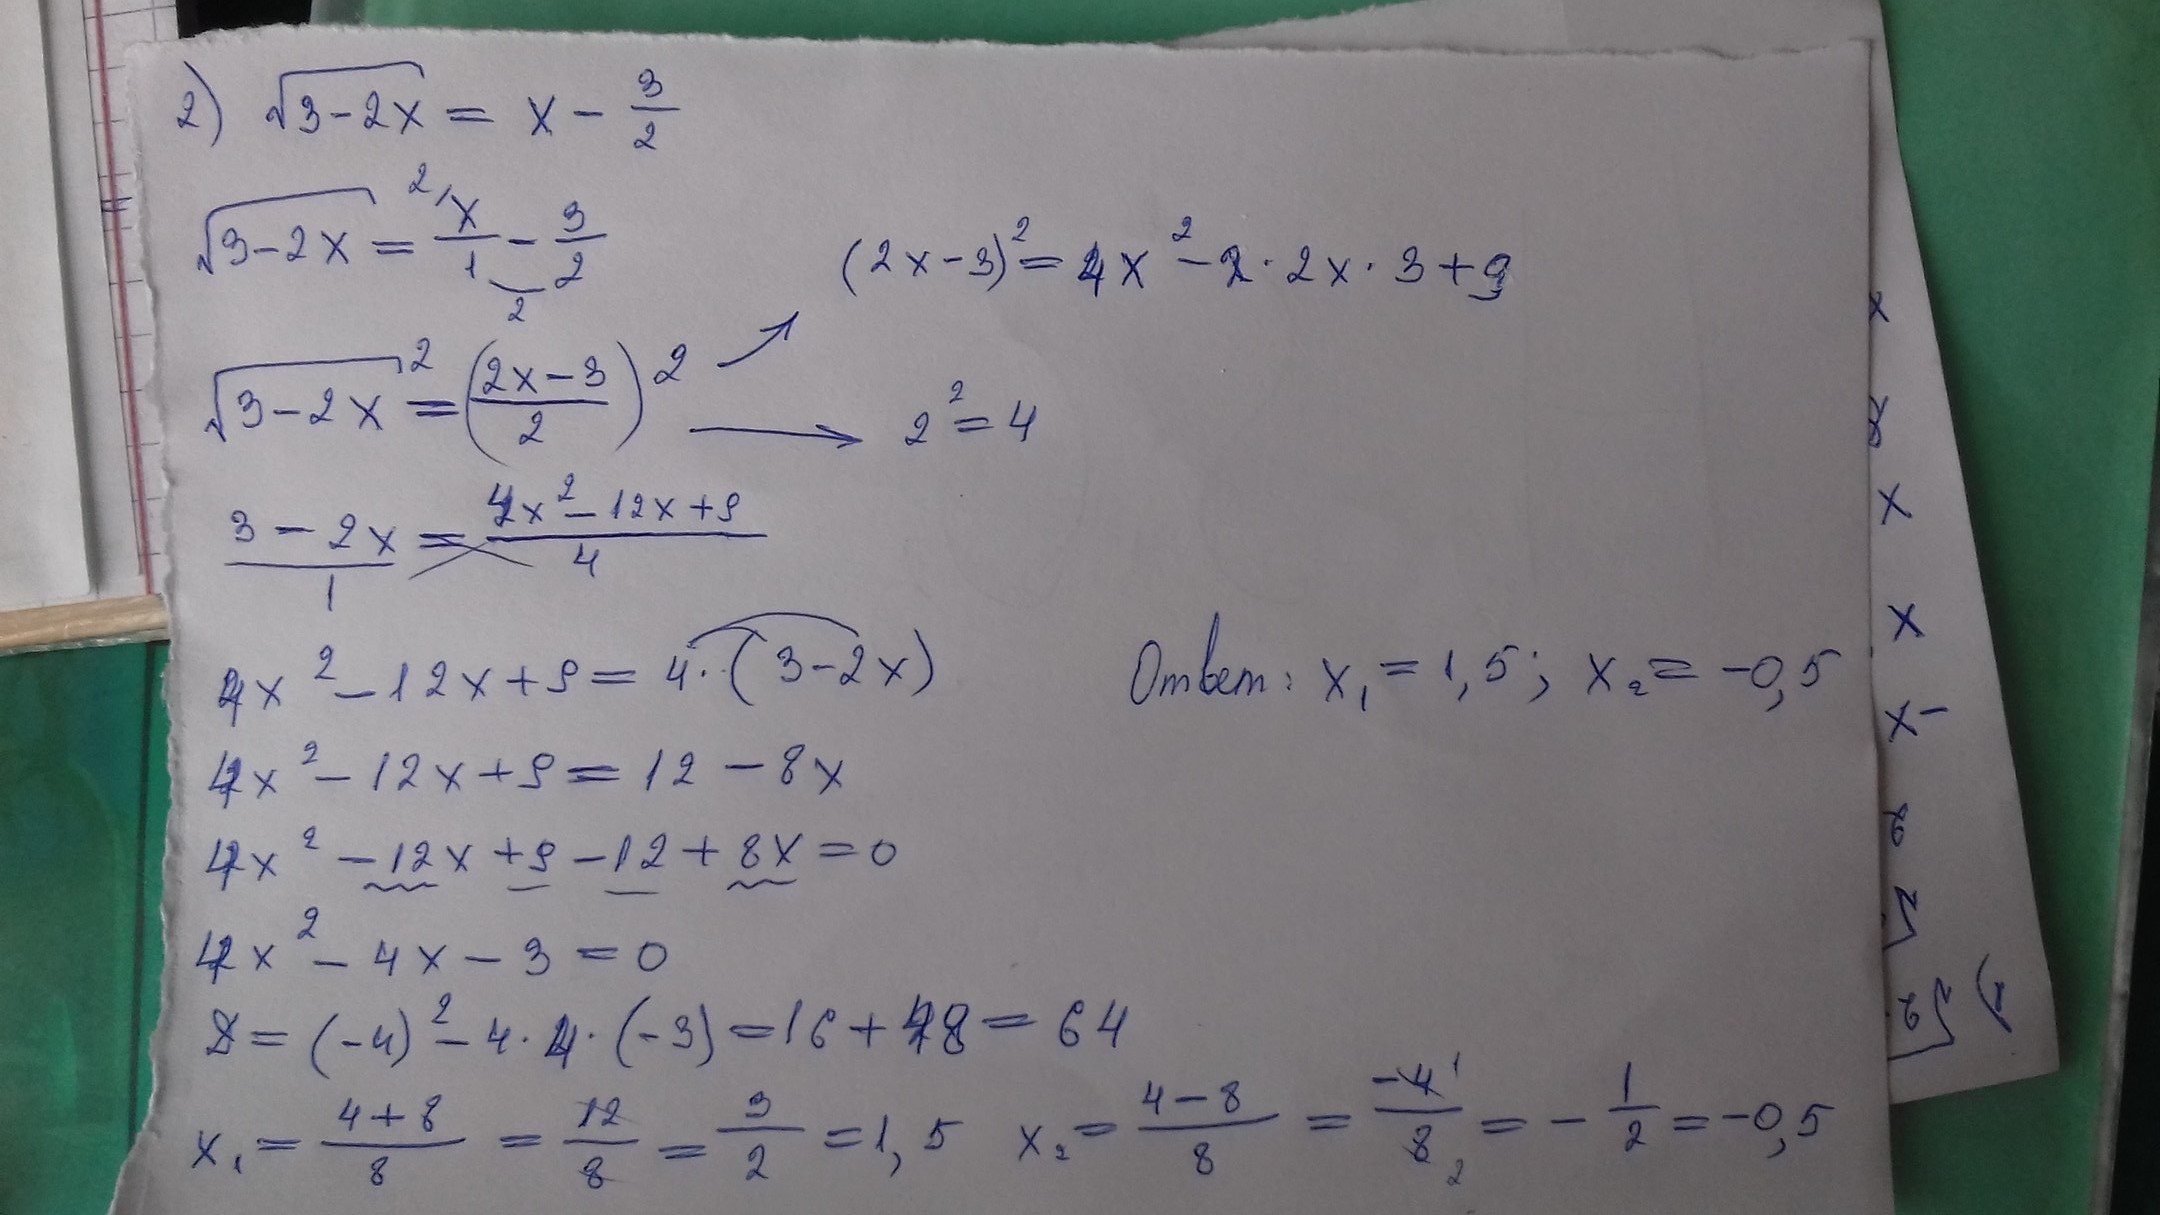 2) √3-2x = x - 3/2
√3-2x = x/1 - 3/2
(2x-3)² = 4x² - 2·2x·3+9
√3-2x² = (2x-3/2)²
2² = 4
3-2x/1 = 4x²-12x+9/4
4x²-12x+9 = 4·(3-2x)
Ответ: x₁ = 1,5; x₂ = -0,5
4x²-12x+9 = 12-8x
4x²-12x+9-12+8x = 0
4x²-4x-3 = 0
D = (-4)²-4·4·(-3) = 16+48 = 64
x₁ = 4+8/8 = 12/8 = 3/2 = 1,5 x₂ = 4-8/8 = -4/8 = -1/2 = -0,5